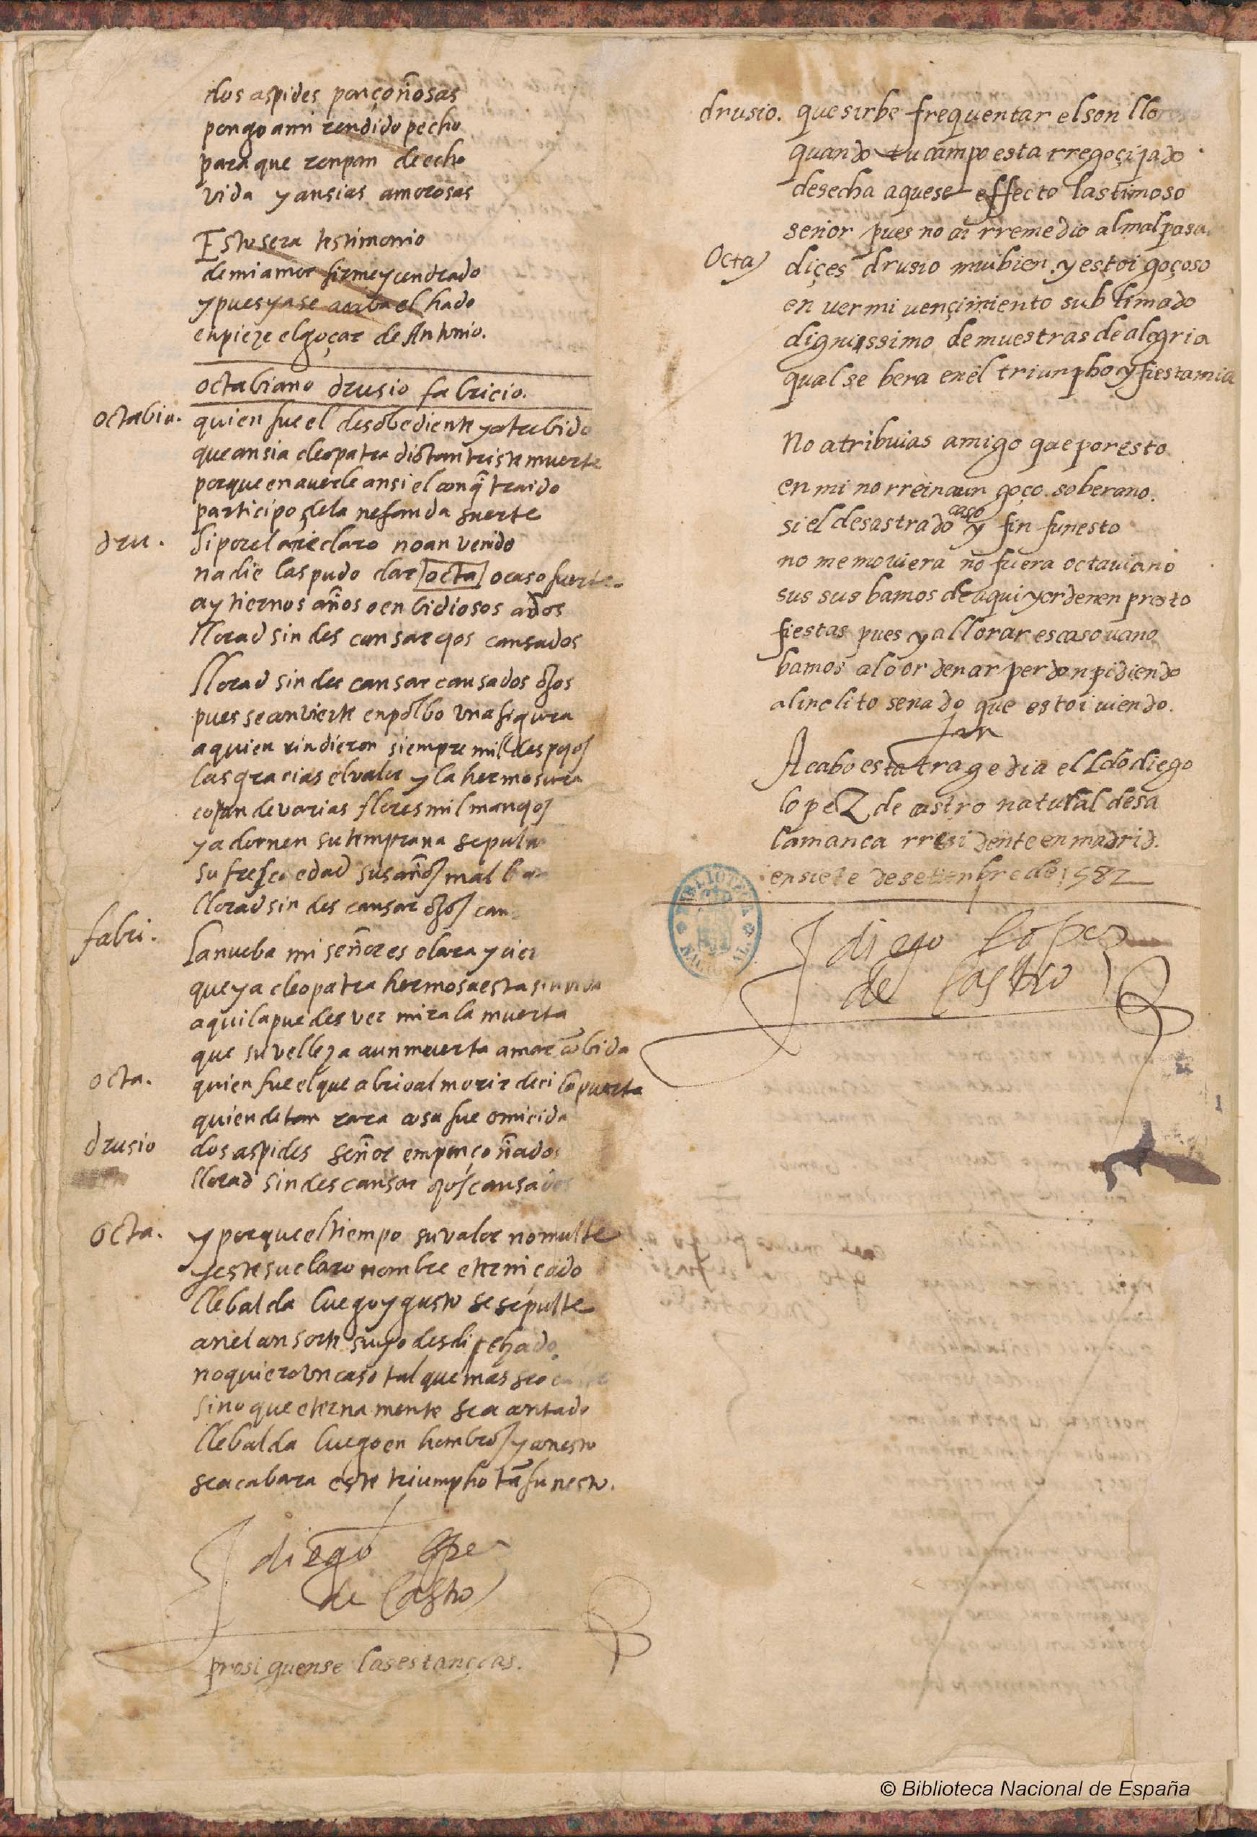 dos aspides ponçoñosas
pongo ami rendido pecho
para que ronpan derecho
vida y ansias amorosas
Este sera testimonio
de mi amor firme y cendrado
y pues ya se acaba el hado
enpieze el goçar de Antonio.
octabiano drusio fabricio.
octabia. quien fue el desobediente y atrebido
que ansia cleopatra dio tan triste muerte
porque en auerle ansi el contraido
participo de la nefanda suerte
dru. si por el aire claro no an venido
nadie las pudo dar octa o caso fuerte
ay tiernos años o enbidiosos ados
llorad sin descansar ojos cansados
llorad sin descansar cansados ojos
pues se convierte en polbo una figura
a quien rindieron siempre mill despojos
las gracias el valor y la hermosura
cojan de varias flores mil manojos
y adornen su temprana
su fresca edad sus años mal
llorad sin descansar ojos
fabri. La nueba mi señor es clara y
que ya cleopatra hermosa esta sin vida
aqui la puedes ver mira la muerta
que su velleza aun muerta amar conbida
octa. quien fue el que abrio al morir deci la puerta
quien de tan rara cosa fue omicida
drusio dos aspides señor emponçoñados
llorad sin descansar ojos cansados
octa. y porque el tiempo su valor no multe
y este su claro nombre eternicado
llebalda luego y gusto se sepulte
con el consorte suyo desdichado
no quiero un caso tal que mas se
sino que eternamente sea contado
llebalda luego en hombros y con esto
se acabara este triumpho tã funesto.
diego lopez
de Castro
prosiguense las estancias.
drusio. que sirbe frequentar el son lloroso
quando tu campo esta rregoçijado
desecha aquese effecto lastimoso
señor pues no ai rremedio al mal pasa
Octa diçes drusio mui bien y estoi goçoso
en ver mi vençimiento sublimado
dignissimo de muestras de alegria
qual se bera en el triumpho y fiesta mia
No atribuias amigo que por esto
en mi no rreina un goço soberano.
si el desastrado caso y fin funesto
no me moviera no fuera octauiano
sus sus bamos de aqui y ordenen presto
fiestas pues ya llorar es caso uano
bamos a lo ordenar perdon pidiendo
al inclito senado que estoi uiendo.
fin
Acabo esta tragedia el Ldo diego
lopez de castro natural de sa
lamanca rresidente en madrid.
en siete de setienbre de 1582
diego lopez
de Castro
BIBLIOTECA NACIONAL
© Biblioteca Nacional de España